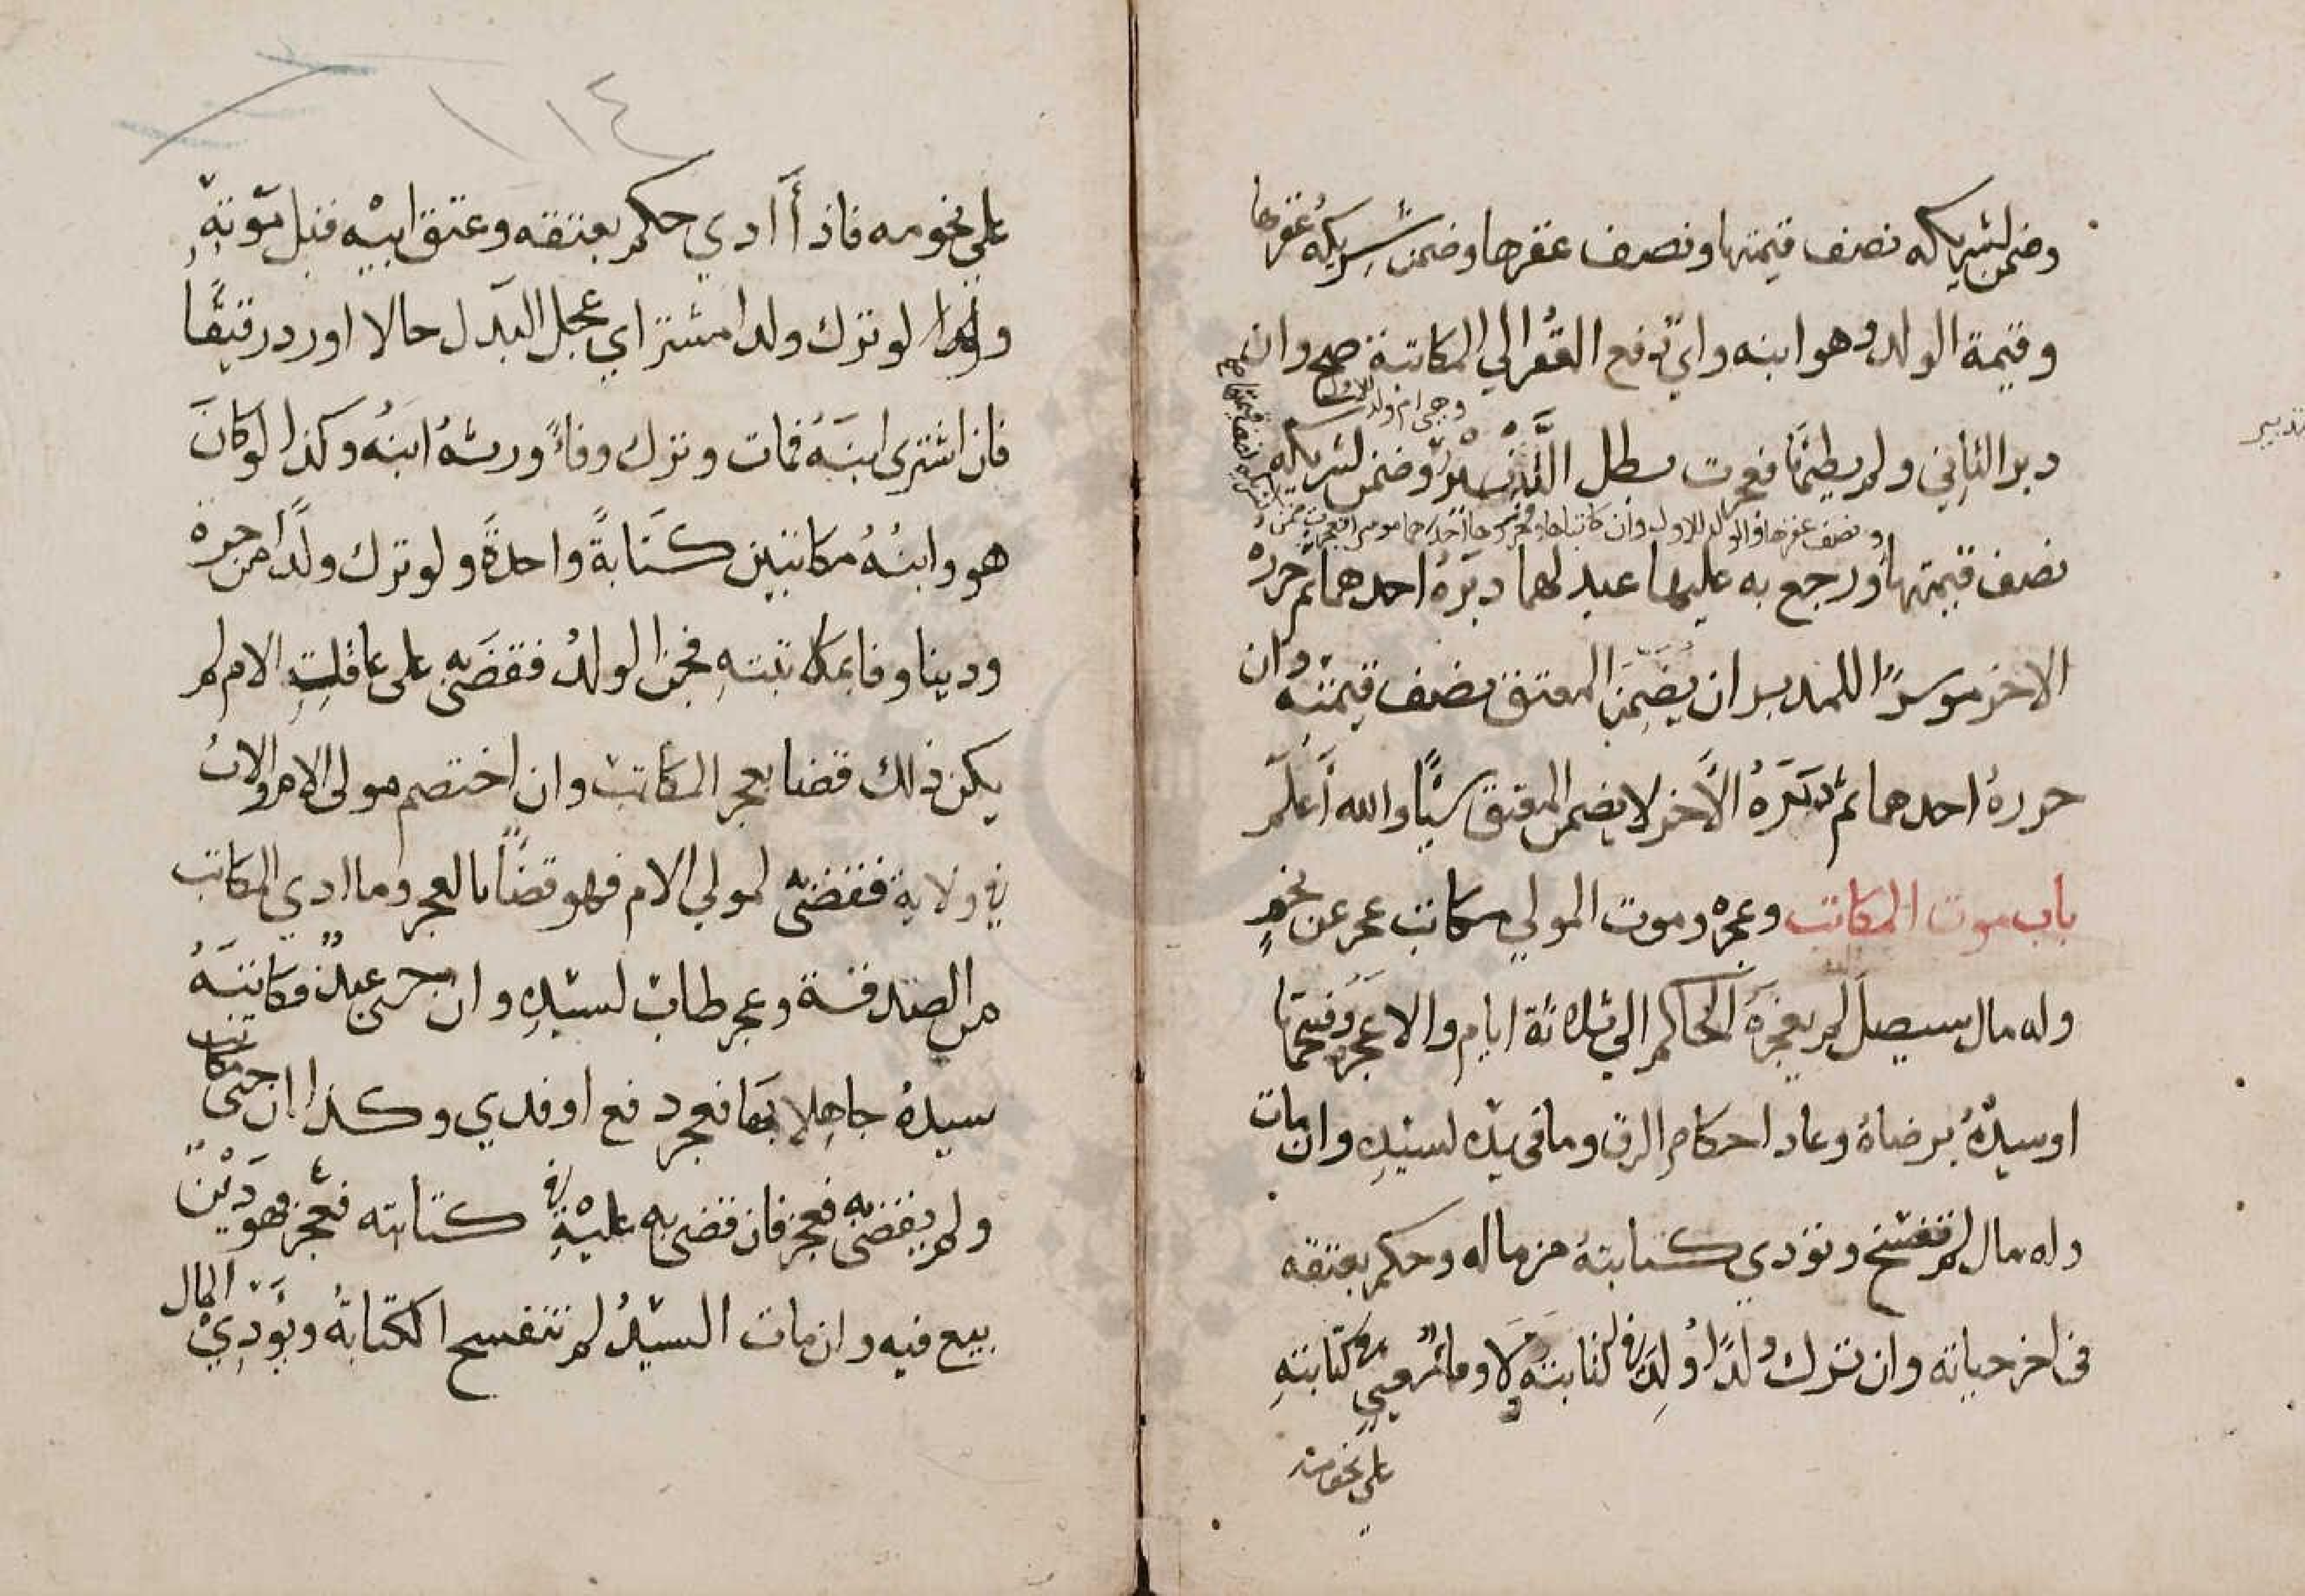 وضمن لشريكه نصف قيمتها ونصف عقرها وضمن شريكه عقرها
وقيمة الولد وهو ابنه واي دفع العقر الي المكاتبة صح وان
دبر الثاني ولم يطئها فعجزت بطل التدبير وضمن لشريكه
وهي ام ولد للاول
نصف قيمتها ورجع به عليها عبد لهما دبره احدهما ثم حرره
ونصف عقرها والولد للاول وان كاتباها فحررها احدهما موسرا فعجزت ضمن
لشريكه نصف قيمتها صح
الاخر موسرًا للمدبر ان يضمن المعتق نصف قيمته وان
حرره احدهما ثم دبره الاخر لا يضمن المعتق شيًا والله أعلم
باب موت المكاتب وعجزه وموت المولي مكاتب عجز عن نجم
وله مال سيصل لم يعجزه الحاكم الي ثلاثة ايام والا عجزه وفسخها
او سيده برضاه وعاد احكام الرق وما في يده لسيده وان مات
وله مال لم تفسخ وتؤدي كتابته من ماله وحكم بعتقه
في اخر حياته وان ترك ولدًا ولد في كتابته لا وفا سعي في كتابته
علي نجومه
تدبير
١١٤
علي نجومه فاذا أدي حكم بعتقه وعتق ابيه قبل موته
ولو ترك ولدا مشتراي عجل البدل حالا او رد رقيقًا
فان اشتري ابنه فمات وترك وفاءً ورثه ابنه وكذا لو كان
هو وابنه مكاتبين كتابةً واحدةً ولو ترك ولدًا من حرة
ودينا وفا بمكاتبته فجني الولد فقضي به علي عاقلة الام لم
يكن ذلك قضا بعجز المكاتب وان اختصم موالي الام والاب
في ولاية فقضي به لموالي الام فهو قضاء بالعجز وما ادي المكاتب
من الصدقة وعجز طاب لسيده وان جني عبد فكاتبه
سيده جاهلا بها فعجز دفع او فدي وكذا ان جني مكاتب
ولم يقض به فعجز فان قضي به عليه في كتابته فعجز فهو دين
بيع فيه وان مات السيد لم تنفسخ الكتابة ويؤدي المال